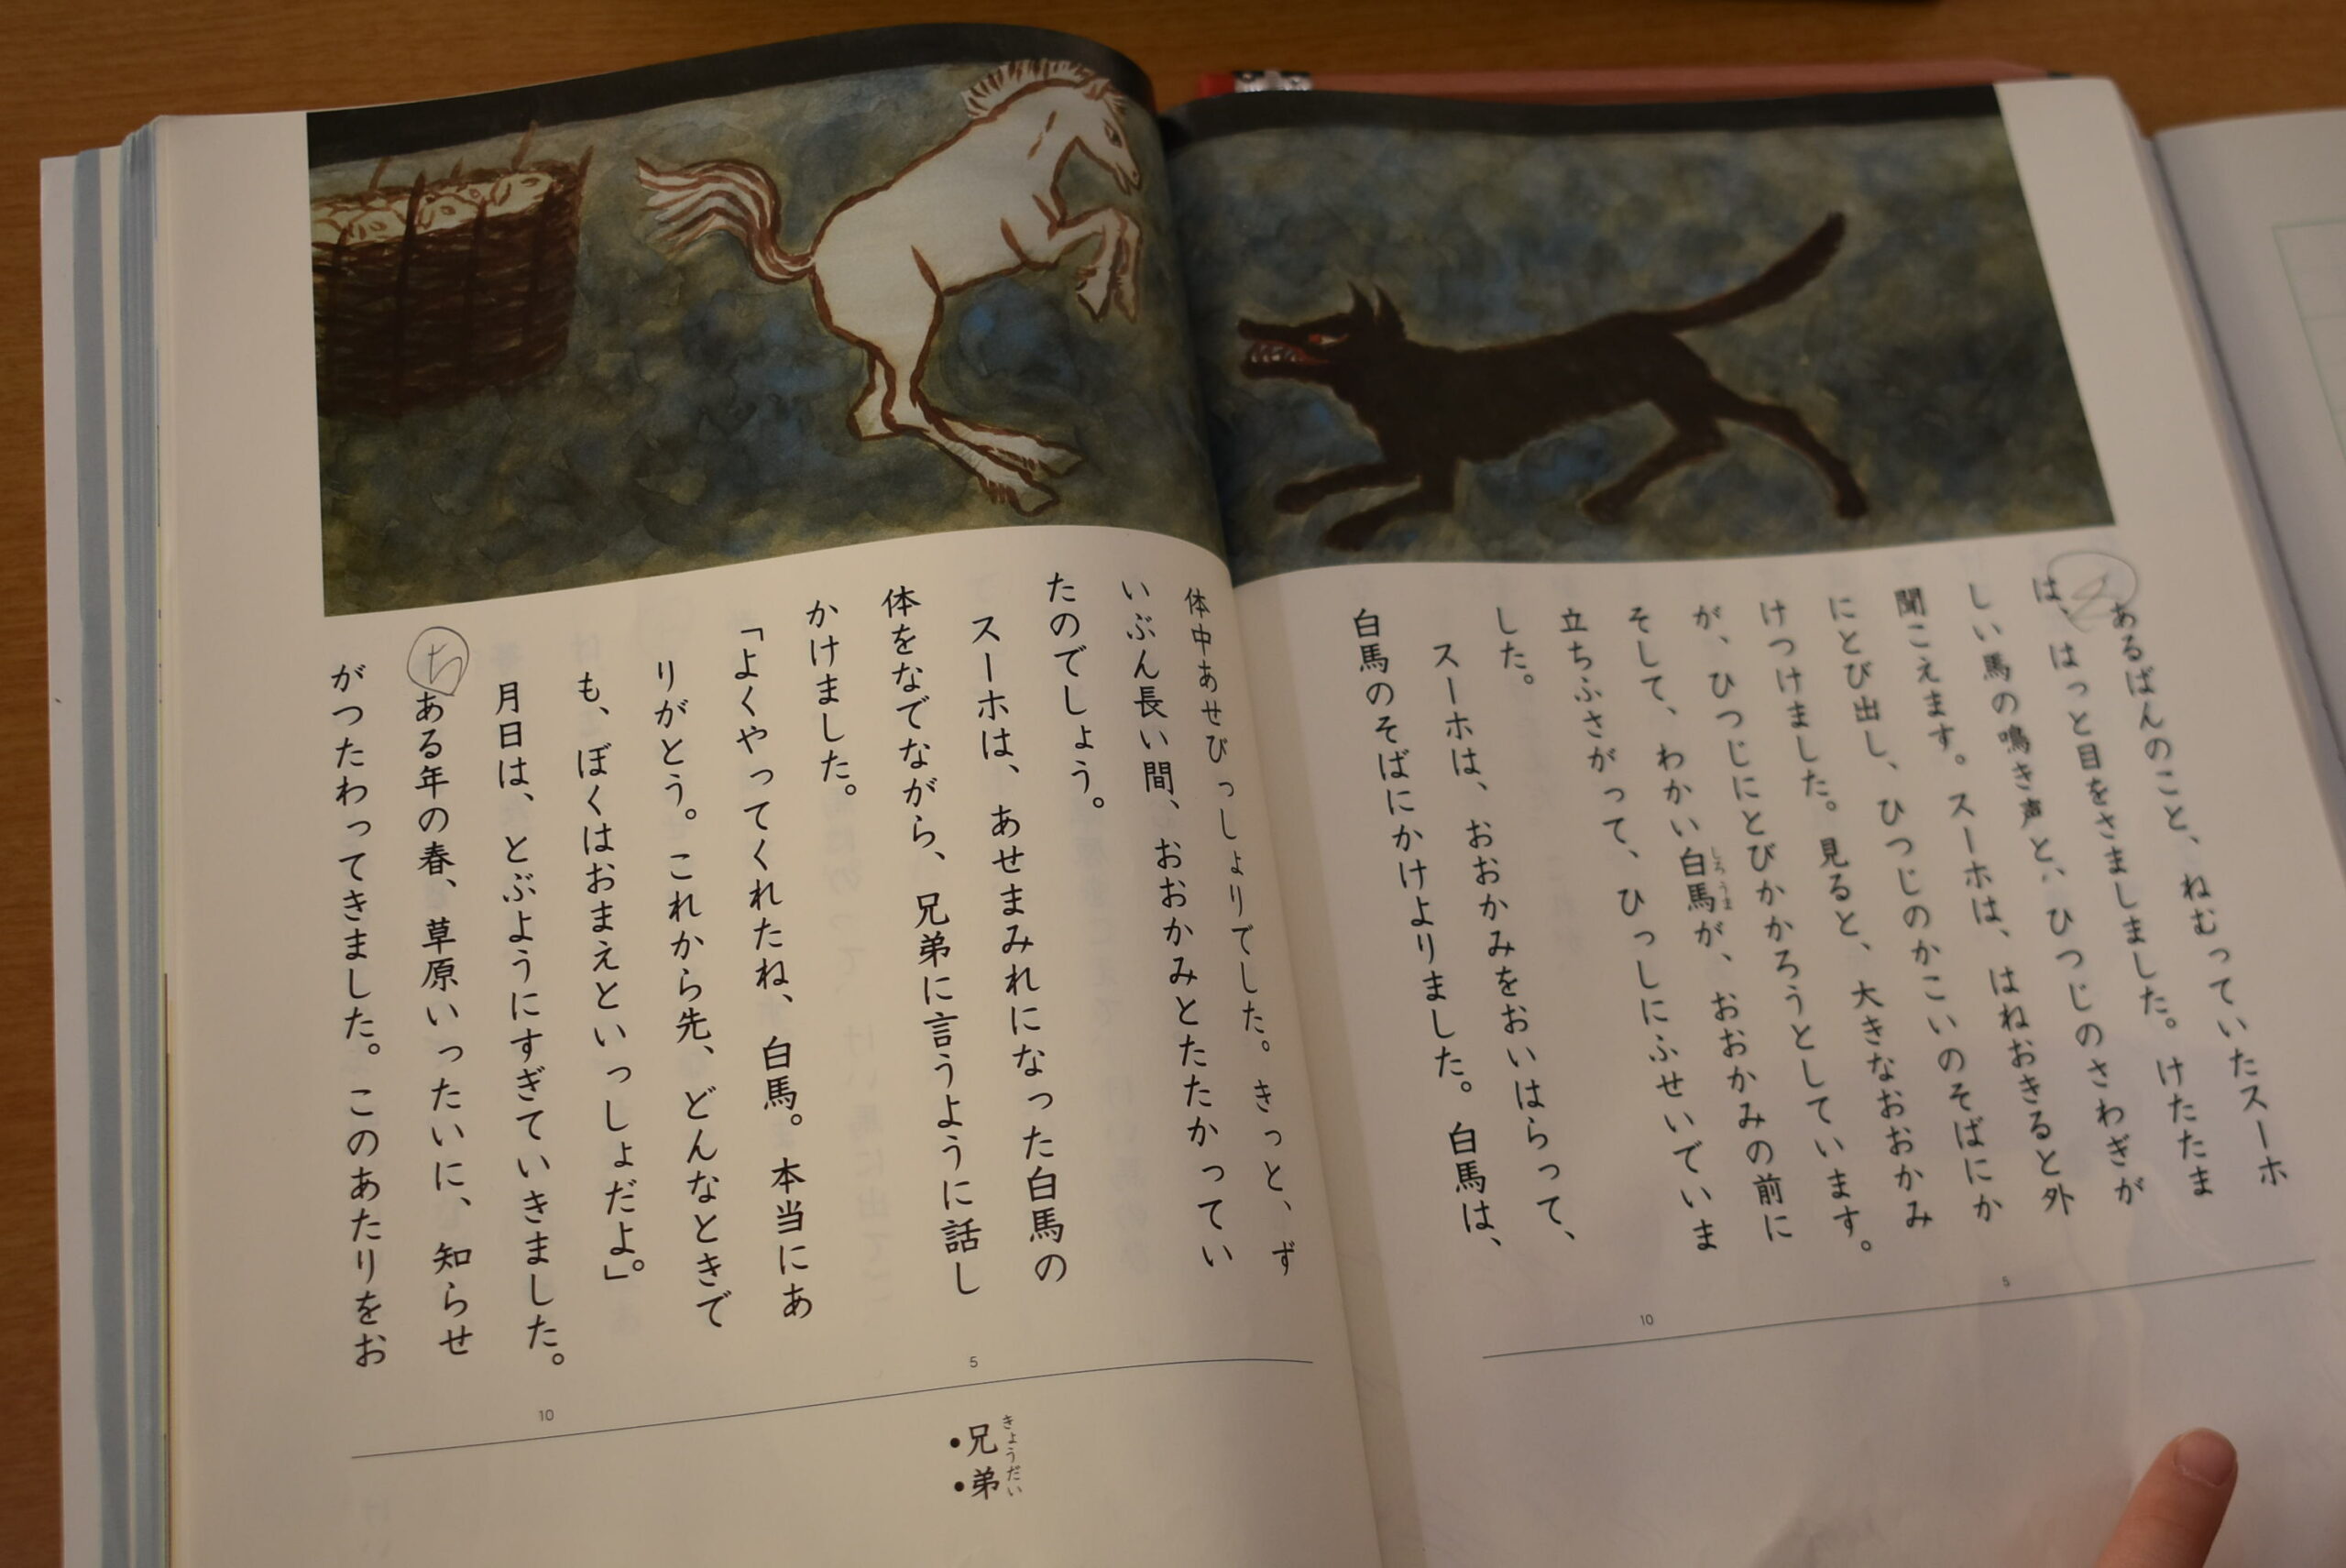 あるばんのこと、ねむっていたスーホ
は、はっと目をさましました。けたたま
しい馬の鳴き声と、ひつじのさわぎが
聞こえます。スーホは、はねおきると外
にとび出し、ひつじのかこいのそばにか
けつけました。見ると、大きなおおかみ
が、ひつじにとびかかろうとしています。
そして、わかい白馬が、おおかみの前に
しろうま
立ちふさがって、ひっしにふせいでいま
した。
スーホは、おおかみをおいはらって、
白馬のそばにかけよりました。白馬は、
5
10
体中あせびっしょりでした。きっと、ず
いぶん長い間、おおかみとたたかってい
たのでしょう。
スーホは、あせまみれになった白馬の
体をなでながら、兄弟に言うように話し
かけました。
「よくやってくれたね、白馬。本当にあ
りがとう。これから先、どんなときで
も、ぼくはおまえといっしょだよ。」
月日は、とぶようにすぎていきました。
ち
ある年の春、草原いったいに、知らせ
がつたわってきました。このあたりをお
5
10
•兄•弟
きょうだい